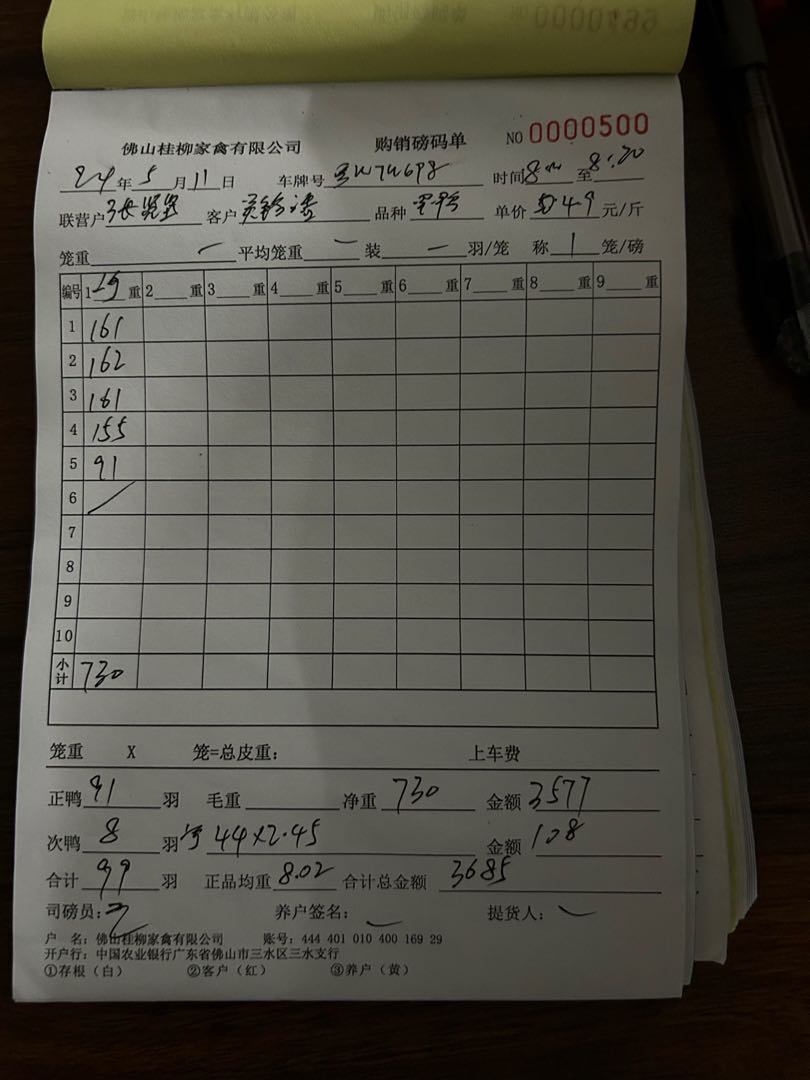 佛山桂柳家禽有限公司 购销磅码单 NO 0000500
24年5月11日 车牌号 时间8 至8:20
联营户 客户 品种 单价 4.9 元/斤
笼重 一 平均笼重 一 装 一 羽/笼 称 1 笼/磅
编号 1 重 2 重 3 重 4 重 5 重 6 重 7 重 8 重 9 重
1 161
2 162
3 161
4 155
5 91
6 /
7
8
9
10
小计 730
笼重 X 笼=总皮重: 上车费
正鸭 91 羽 毛重 净重 730 金额 3577
次鸭 8 羽 44×2.45 金额 108
合计 99 羽 正品均重 8.02 合计总金额 3685
司磅员: 养户签名: 提货人:
户 名: 佛山桂柳家禽有限公司 账号: 444 401 010 400 169 29
开户行: 中国农业银行广东省佛山市三水区三水支行
①存根(白) ②客户(红) ③养户(黄)